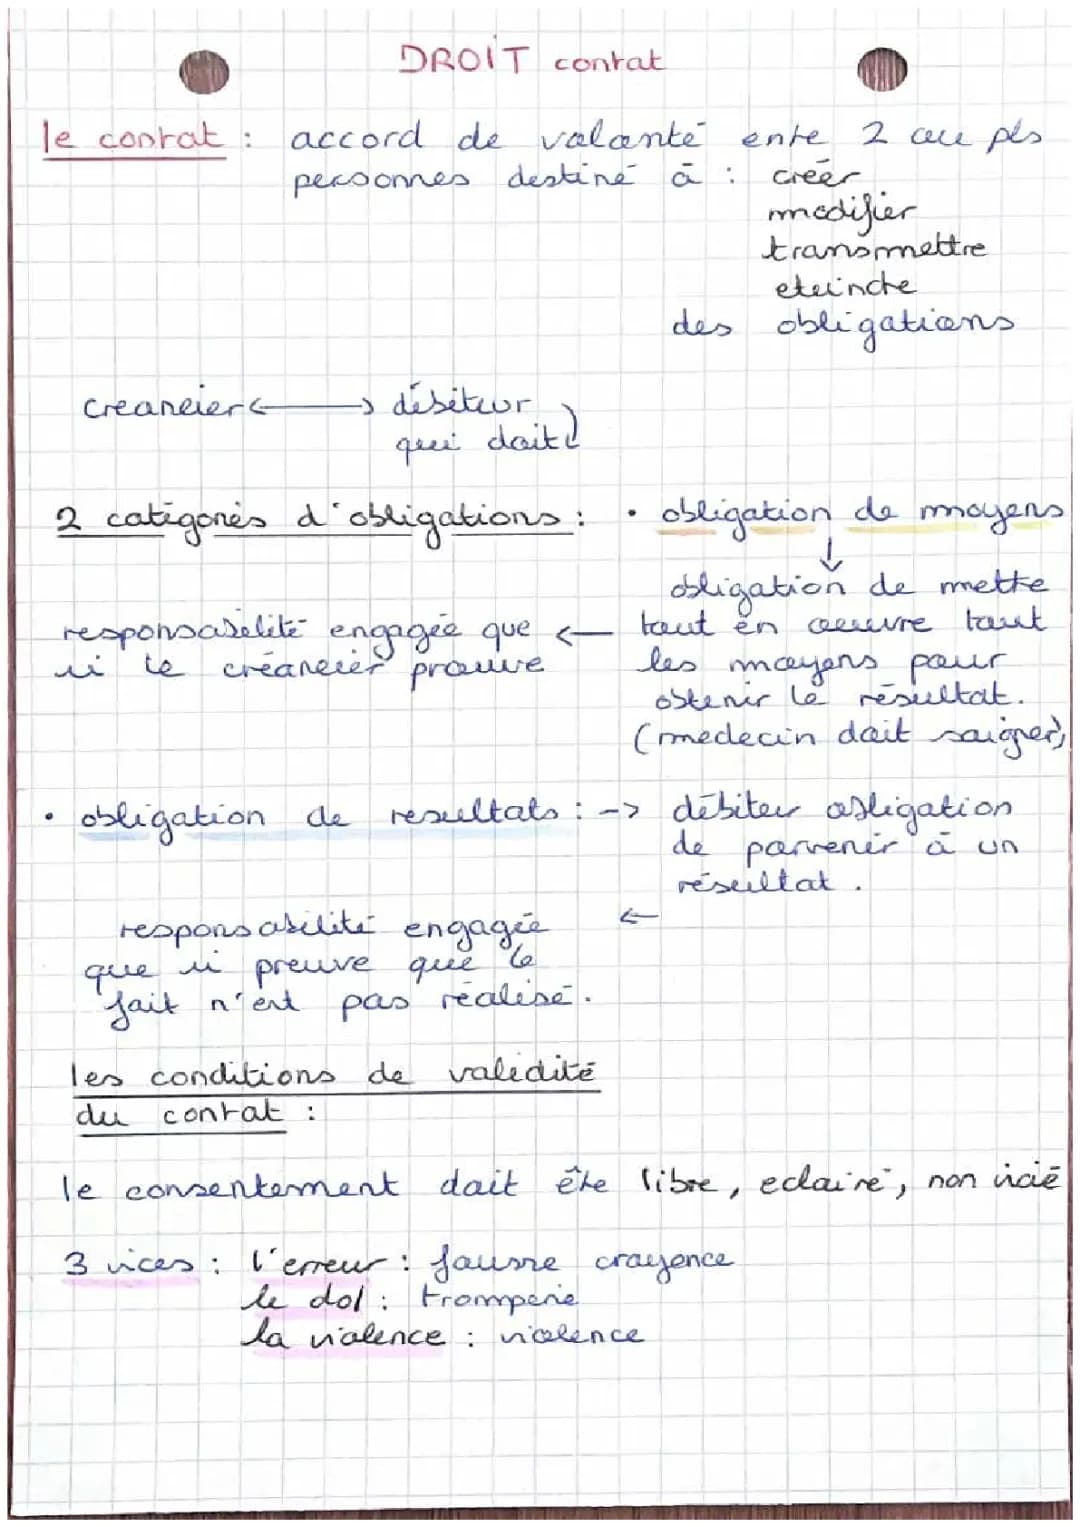 DROIT contrat
le contrat : accord de volonté entre 2 ou pls
personnes destiné à : créer
modifier
transmettre
eteindre
des obligations
creancier <-> débiteur
qui doit
2 catégories d'obligations : • obligation de moyens
↓
obligation de mettre
responsabilité engagée que <- tout en oeuvre tout
si le créancier prouve les moyens pour
obtenir le résultat.
(medecin doit soigner)
• obligation de resultats : -> débiteur obligation
de parvenir à un
résultat.
responsabilité engagée <-
que si preuve que le
fait n'est pas réalisé.
les conditions de validité
du contrat :
le consentement doit être libre, eclairé, non vicié
3 vices : l'erreur : fausse croyence
le dol : tromperie
la violence : violence